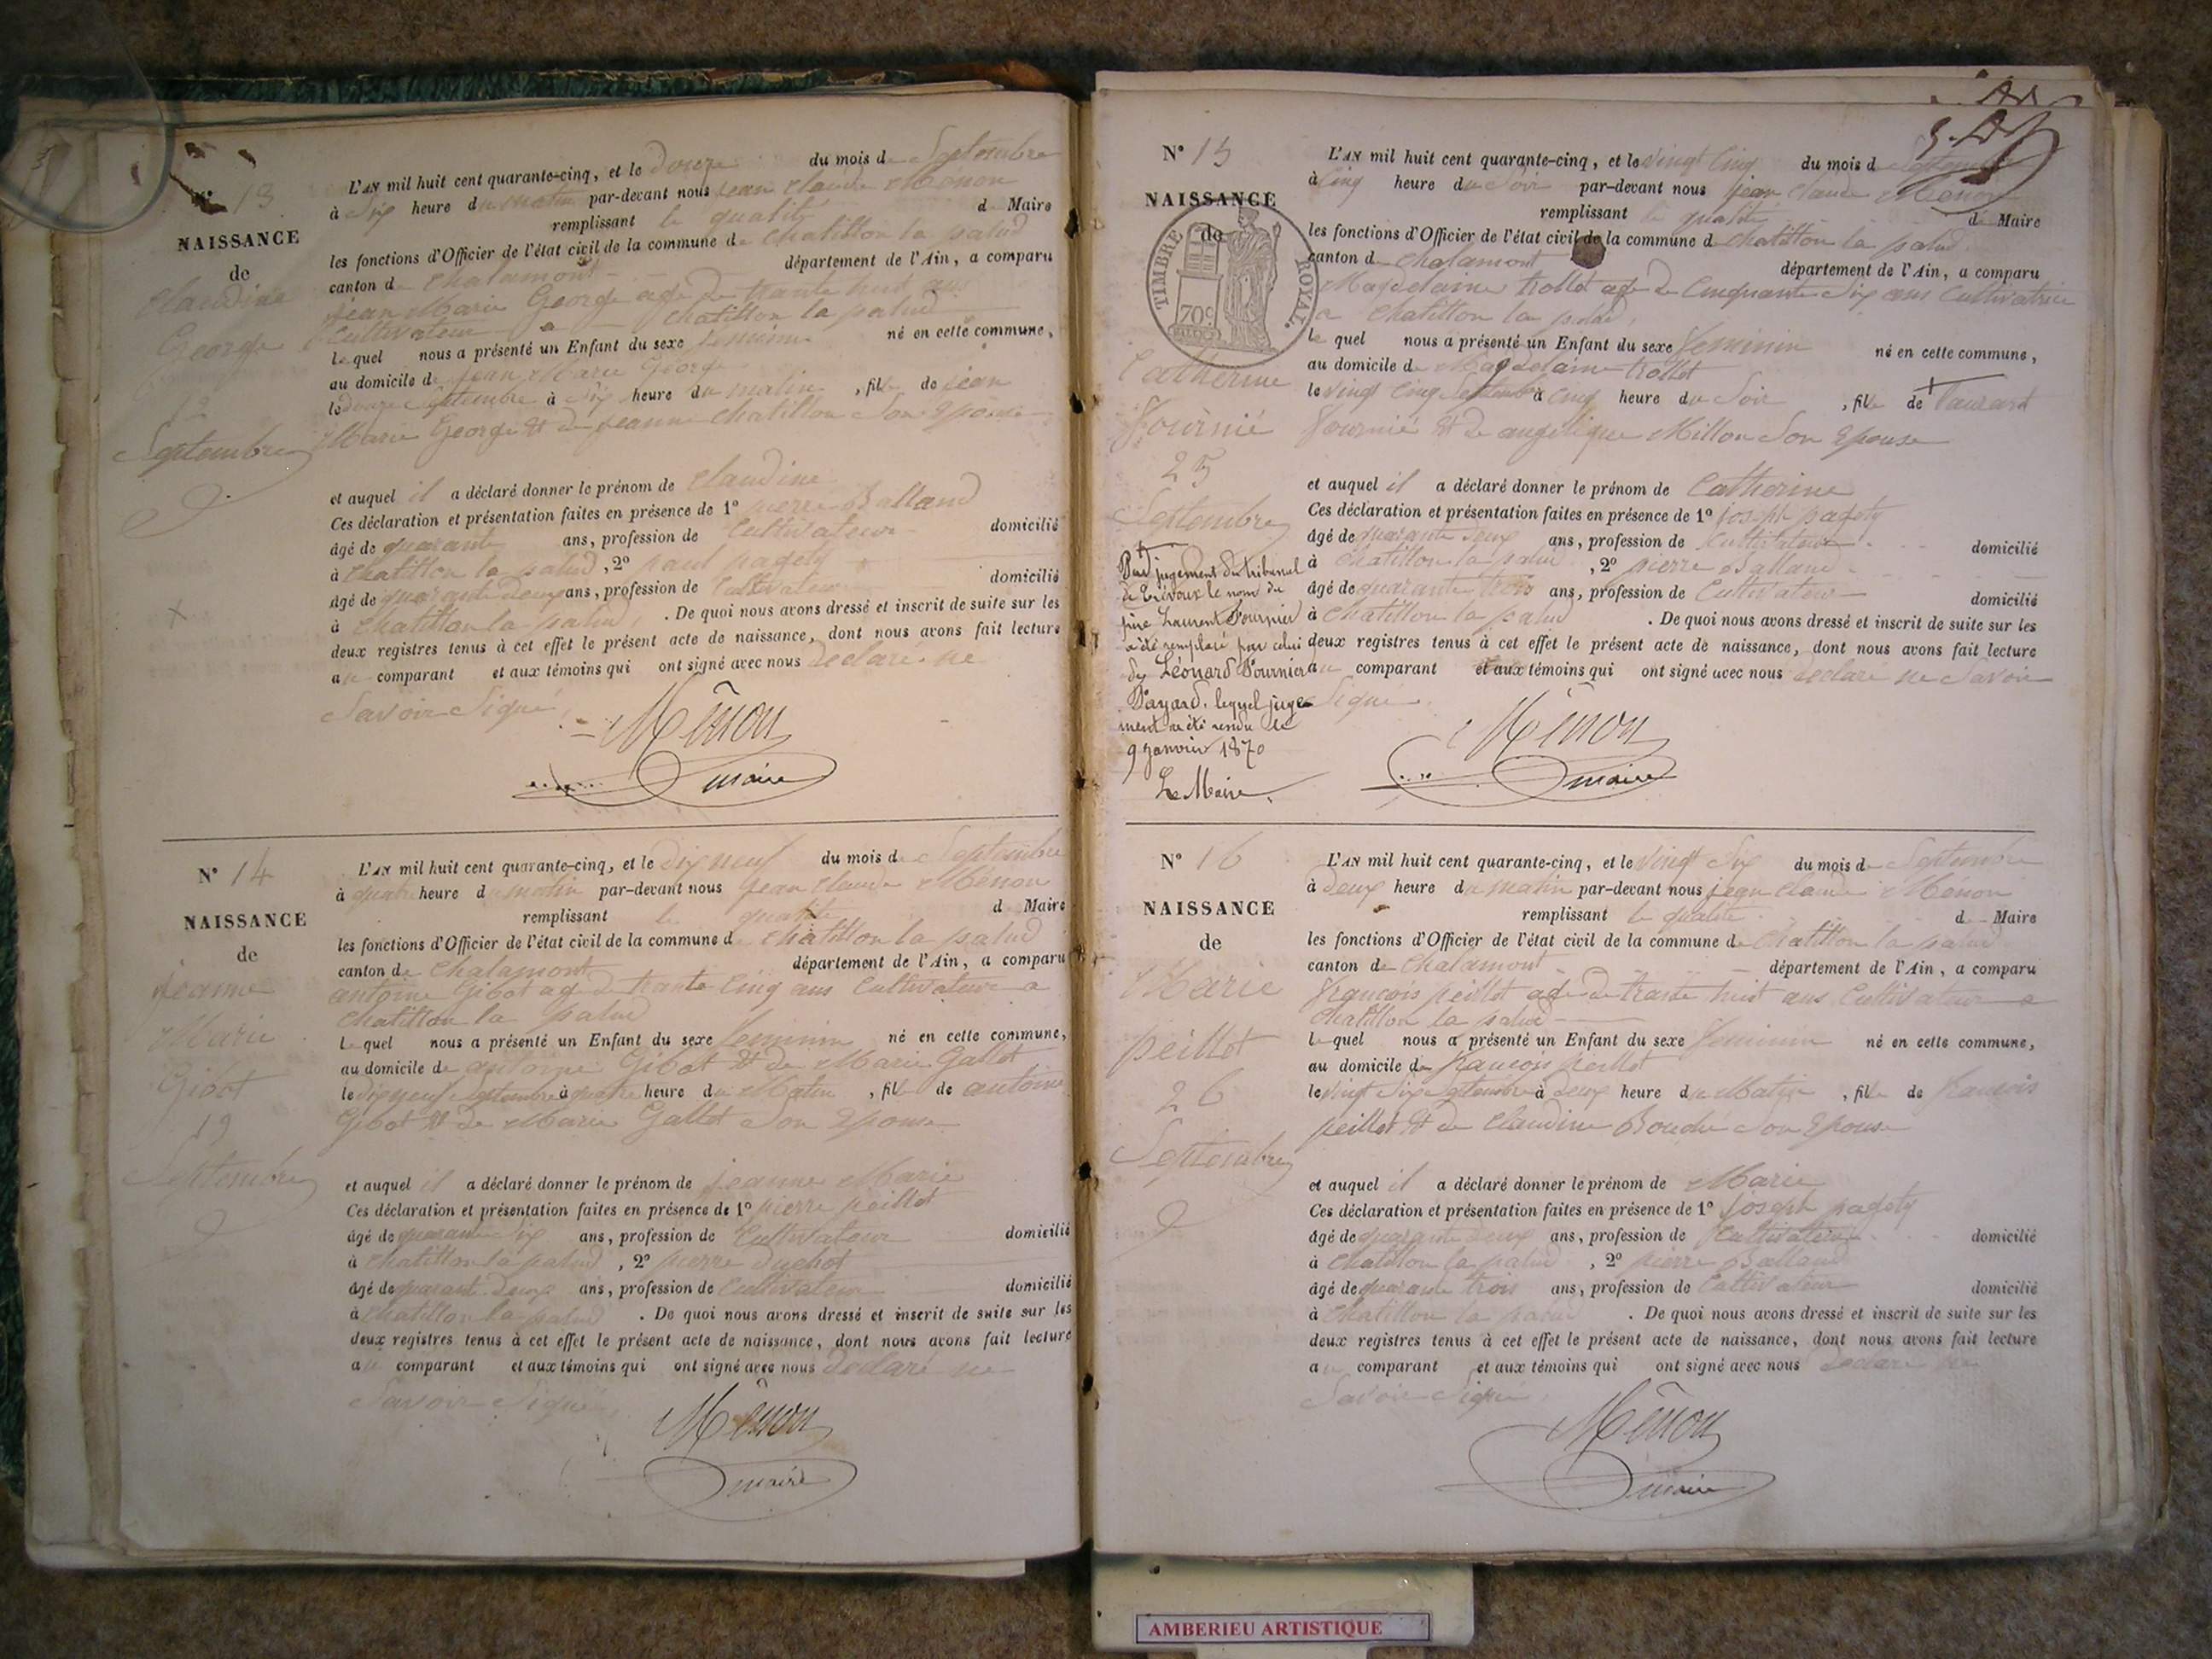 N° 13
NAISSANCE
de
Claudine
George
12
Septembre
L'AN mil huit cent quarante-cinq, et le Douze du mois d Septembre
à Six heure du matin par-devant nous jean Claude Ménon
remplissant la qualité d Maire
les fonctions d'Officier de l'état civil de la commune de Chatillon la palud
canton de Chalamont département de l'Ain, a comparu
jean Marie George agé de trante huit ans
Cultivateur a chatillon la palud
lequel nous a présenté un Enfant du sexe feminin né en cette commune,
au domicile de jean Marie George
le douze Septembre à Six heure du matin, fille de jean
Marie George et de jeanne chatillon Son Epouse
et auquel il a déclaré donner le prénom de Claudine
Ces déclaration et présentation faites en présence de 1° pierre Balland
âgé de quarante ans, profession de Cultivateur domicilié
à Chatillon la palud, 2° paul pagety
âgé de quarante Deux ans, profession de Cultivateur domicilié
à Chatillon la palud. De quoi nous avons dressé et inscrit de suite sur les
deux registres tenus à cet effet le présent acte de naissance, dont nous avons fait lecture
au comparant et aux témoins qui ont signé avec nous Declaré ne
Savoir Signé
Ménon
maire
N° 14
NAISSANCE
de
jeanne
Marie
Gibot
19
Septembre
L'AN mil huit cent quarante-cinq, et le Dix neuf du mois d Septembre
à quatre heure du matin par-devant nous jean Claude Ménon
remplissant la qualité d Maire
les fonctions d'Officier de l'état civil de la commune d Chatillon la palud
canton de Chalamont département de l'Ain, a comparu
antoine Gibot agé de trante Cinq ans Cultivateur a
Chatillon la palud
lequel nous a présenté un Enfant du sexe feminin né en cette commune,
au domicile de antoine Gibot et de Marie Gallet
le Dix neuf Septembre à quatre heure du Matin, fille de antoine
Gibot et de Marie Gallet Son Epouse
et auquel il a déclaré donner le prénom de jeanne Marie
Ces déclaration et présentation faites en présence de 1° pierre peillot
âgé de quarante Six ans, profession de Cultivateur domicilié
à Chatillon la palud, 2° pierre Duchot
âgé de quarant Deux ans, profession de Cultivateur domicilié
à Chatillon la palud. De quoi nous avons dressé et inscrit de suite sur les
deux registres tenus à cet effet le présent acte de naissance, dont nous avons fait lecture
au comparant et aux témoins qui ont signé avec nous Declaré ne
Savoir Signé
Ménon
maire
N° 15
NAISSANCE
de
TIMBRE ROYAL.
70c
Catherine
Fournié
25
Septembre
Par jugement du tribunal
de Trévoux le nom du
père Laurent Fournier
a été remplacé par celui
de Léonard Fournier
Bayard, lequel juge-
ment a été rendu le
9 janvier 1870
Le Maire,
L'AN mil huit cent quarante-cinq, et le Vingt Cinq du mois d Septembre
à Cinq heure du Soir par-devant nous jean Claude Ménon
remplissant la qualité d Maire
les fonctions d'Officier de l'état civil de la commune d Chatillon la palud
canton de Chalamont département de l'Ain, a comparu
Magdelaine trollet agé de Cinquante Six ans Cultivatrice
a Chatillon la palud
le quel nous a présenté un Enfant du sexe feminin né en cette commune,
au domicile de Magdelaine trollet
le Vingt Cinq Septembre à Cinq heure du Soir, fille de Laurant
Fournié et de angélique Millon Son Epouse
et auquel il a déclaré donner le prénom de Catherine
Ces déclaration et présentation faites en présence de 1° joseph pagety
âgé de quarante Deux ans, profession de Cultivateur domicilié
à Chatillon la palud, 2° pierre Balland
âgé de quarante trois ans, profession de Cultivateur domicilié
à Chatillon la palud. De quoi nous avons dressé et inscrit de suite sur les
deux registres tenus à cet effet le présent acte de naissance, dont nous avons fait lecture
au comparant et aux témoins qui ont signé avec nous Declaré ne Savoir
Signé.
Ménon
maire
N° 16
NAISSANCE
de
Marie
peillot
26
Septembre
L'AN mil huit cent quarante-cinq, et le Vingt Six du mois de Septembre
à Deux heure du matin par-devant nous jean Claude Ménon
remplissant la qualité de Maire
les fonctions d'Officier de l'état civil de la commune de Chatillon la palud
canton de Chalamont département de l'Ain, a comparu
françois peillot agé de trante huit ans Cultivateur a
Chatillon la palud
lequel nous a présenté un Enfant du sexe feminin né en cette commune,
au domicile de françois peillot
le Vingt Six Septembre à Deux heure du Matin, fille de francois
peillot et de Claudine Boudié Son Epouse
et auquel il a déclaré donner le prénom de Marie
Ces déclaration et présentation faites en présence de 1° joseph pagety
âgé de quarante Deux ans, profession de Cultivateur domicilié
à Chatillon la palud, 2° pierre Balland
âgé de quarante trois ans, profession de Cultivateur domicilié
à Chatillon la palud. De quoi nous avons dressé et inscrit de suite sur les
deux registres tenus à cet effet le présent acte de naissance, dont nous avons fait lecture
au comparant et aux témoins qui ont signé avec nous Declaré ne
Savoir Signé
Ménon
maire
AMBERIEU ARTISTIQUE